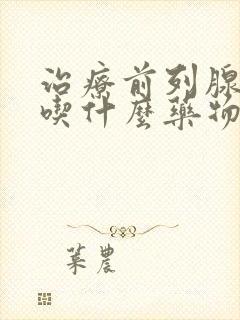 治療前列腺
喫什麼藥物
葉農